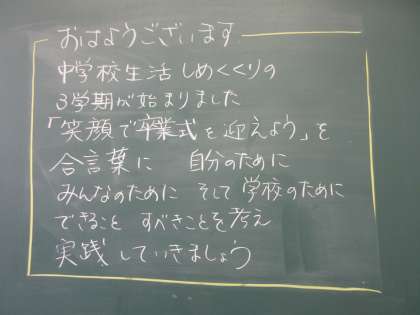 おはようございます
中学校生活しめくくりの
3学期が始まりました
「笑顔で卒業式を迎えよう」を
合言葉に 自分のために
みんなのために そして 学校のために
できること すべきことを考え
実践していきましょう